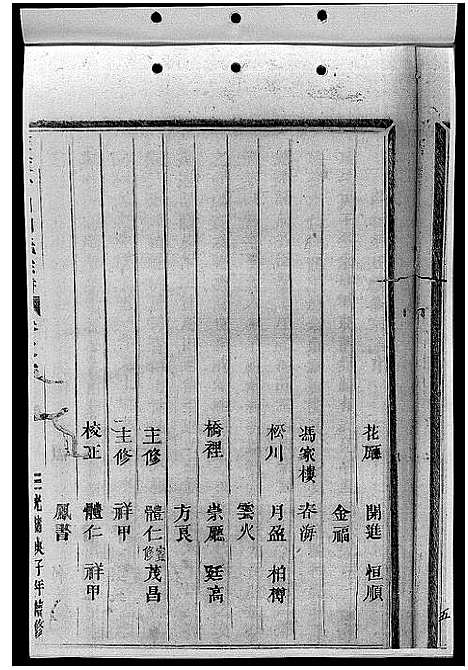 花廳 開進 恒順
金福
馮家樓 春海
松川 月盈 柏樽
雲火
橋裡 崇廳 廷高
方良
主修 體仁 茂昌
主修 祥甲
校正 體仁 祥甲
鳳書
光緒庚子年續修
五